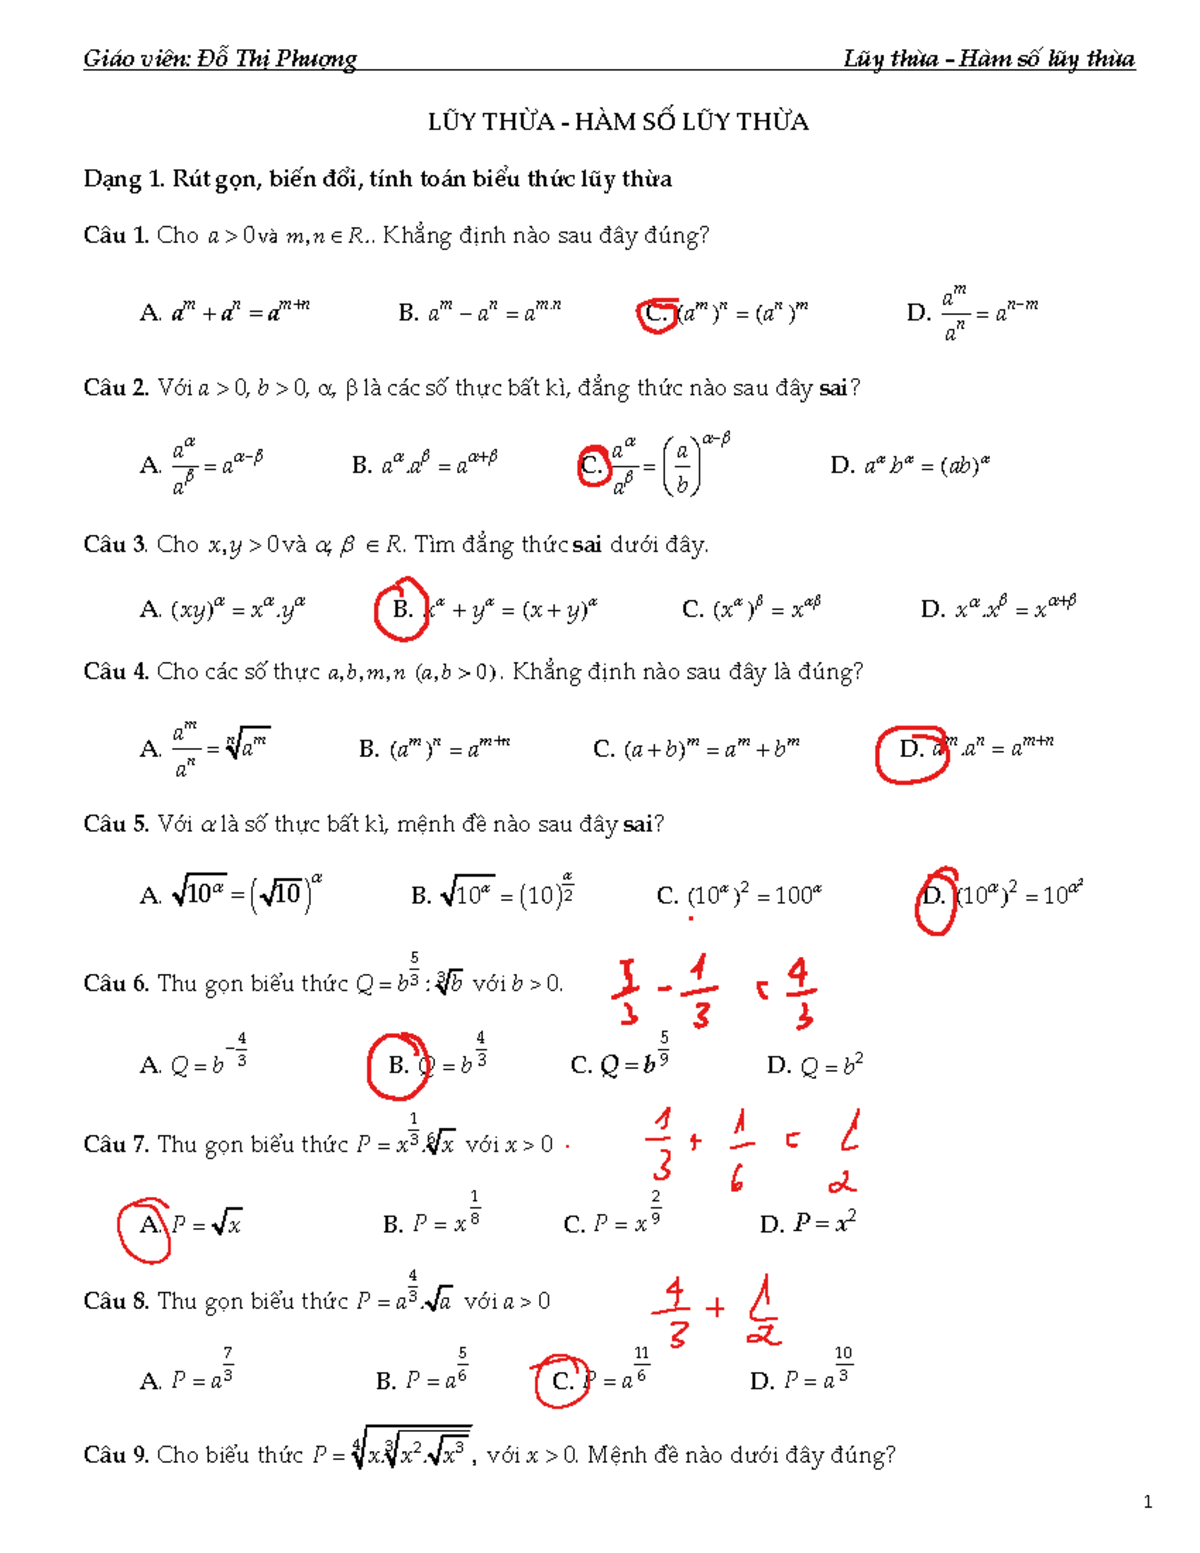 Giáo viên: Đỗ Thị Phượng Lũy thừa – Hàm số lũy thừa
LŨY THỪA - HÀM SỐ LŨY THỪA
Dạng 1. Rút gọn, biến đổi, tính toán biểu thức lũy thừa
Câu 1. Cho a > 0 và m, n ∈ R.. Khẳng định nào sau đây đúng?
A. a^m + a^n = a^{m+n} B. a^m − a^n = a^{m.n} C. (a^m)^n = (a^n)^m D. a^m/a^n = a^{n−m}
Câu 2. Với a > 0, b > 0, α, β là các số thực bất kì, đẳng thức nào sau đây sai?
A. a^α/a^β = a^{α−β} B. a^α.a^β = a^{α+β} C. a^α/a^β = (a/b)^{α−β} D. a^α.b^α = (ab)^α
Câu 3. Cho x, y > 0 và α, β ∈ R. Tìm đẳng thức sai dưới đây.
A. (xy)^α = x^α.y^α B. x^α + y^α = (x + y)^α C. (x^α)^β = x^{αβ} D. x^α.x^β = x^{α+β}
Câu 4. Cho các số thực a, b, m, n (a, b > 0). Khẳng định nào sau đây là đúng?
A. a^m/a^n = ⁿ√(a^m) B. (a^m)^n = a^{m+n} C. (a + b)^m = a^m + b^m D. a^m.a^n = a^{m+n}
Câu 5. Với α là số thực bất kì, mệnh đề nào sau đây sai?
A. √(10^α) = (√10)^α B. √(10^α) = (10)^{α/2} C. (10^α)^2 = 100^α D. (10^α)^2 = 10^{α^2}
Câu 6. Thu gọn biểu thức Q = b^{5/3} : ∛b với b > 0. 5/3 - 1/3 = 4/3
A. Q = b^{−4/3} B. Q = b^{4/3} C. Q = b^{5/9} D. Q = b^2
Câu 7. Thu gọn biểu thức P = x^{1/3}.⁶√x với x > 0 1/3 + 1/6 = 1/2
A. P = √x B. P = x^{1/8} C. P = x^{2/9} D. P = x^2
Câu 8. Thu gọn biểu thức P = a^{4/3}.√a với a > 0 4/3 + 1/2
A. P = a^{7/3} B. P = a^{5/6} C. P = a^{11/6} D. P = a^{10/3}
Câu 9. Cho biểu thức P = ⁴√(x.∛(x^2.√(x^3))), với x > 0. Mệnh đề nào dưới đây đúng?
1